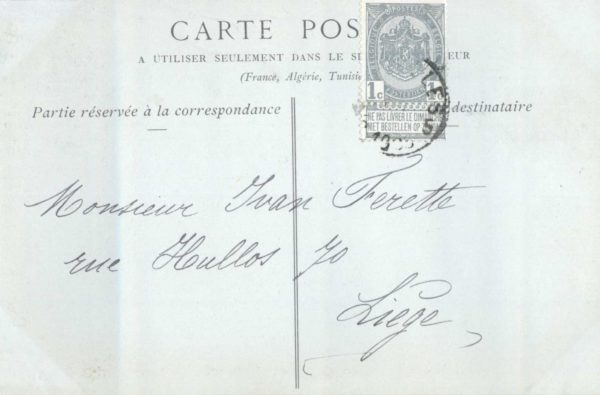 CARTE POS
A UTILISER SEULEMENT DANS LE SE EUR
(France, Algérie, Tunisie
Partie réservée à la correspondance
destinataire
POSTERIJEN
1c 1
NE PAS LIVRER LE DIM
NIET BESTELLEN OP
Monsieur Ivan Ferette
rue Hullos 70
Liège